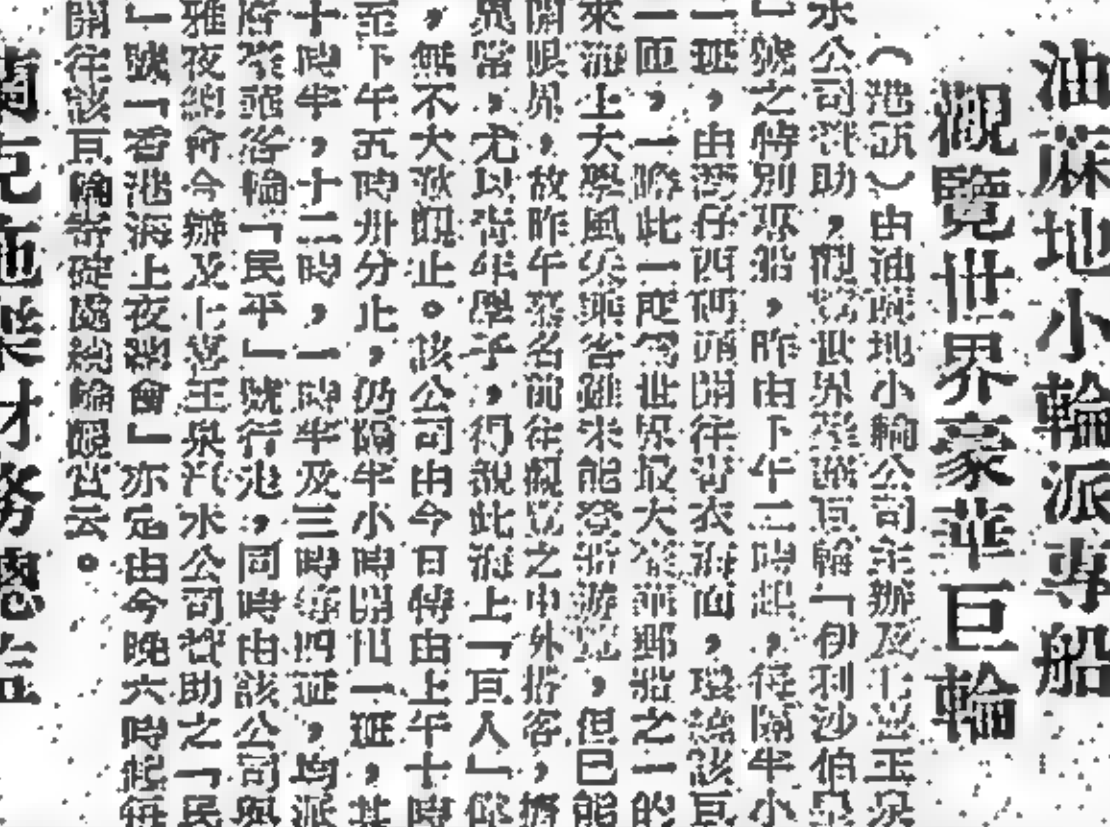 油蔴地小輪派專船
觀覽世界豪華巨輪
（港訊）由油蔴地小輪公司主辦及七喜玉泉
水公司贊助，觀覽世界豪華巨輪「伊利沙伯皇
」號之特別專船，昨由下午二時起，每隔半小
一班，由灣仔西碼頭開往青衣海面，環繞該巨
一匝，一睹此一度為世界最大豪華郵船之一的
來海上大學風采乘客雖未能登船遊覽，但已能
開眼界，故昨午慕名前往觀覽之中外搭客，擠
異常，尤以青年學子，得親此海上「巨人」
，無不大歎觀止。該公司由今日特由上午十時
至下午五時卅分止，仍隔半小時開出一班，其
十時半，十二時，一時半及三時等四班，均派
豪華客輪「民平」號行走，同時由該公司與
雅夜總會合辦及七喜玉泉汽水公司贊助之「民
」號「香港海上夜總會」亦定由今晚六時起每
開往該巨輪停碇處繞輪觀賞云。